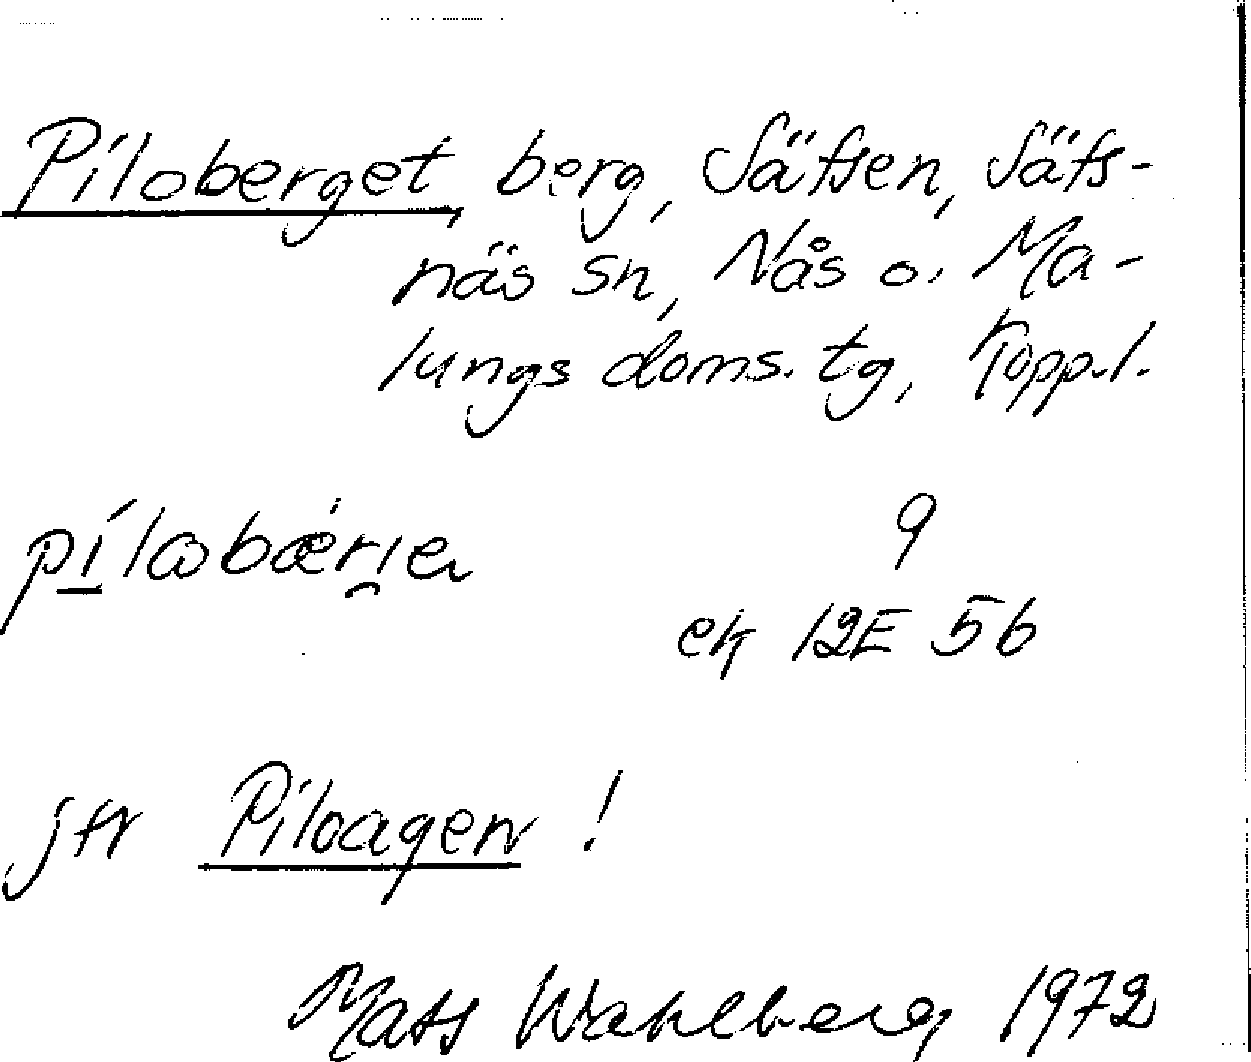 Piloberget, berg, Säfsen, Säfs-
näs sn, Nås o. Ma-
lungs doms. tg, Kopp.l.
9
ek 12E 5b
jfr Piloagen !
Mats Wahlberg 1972